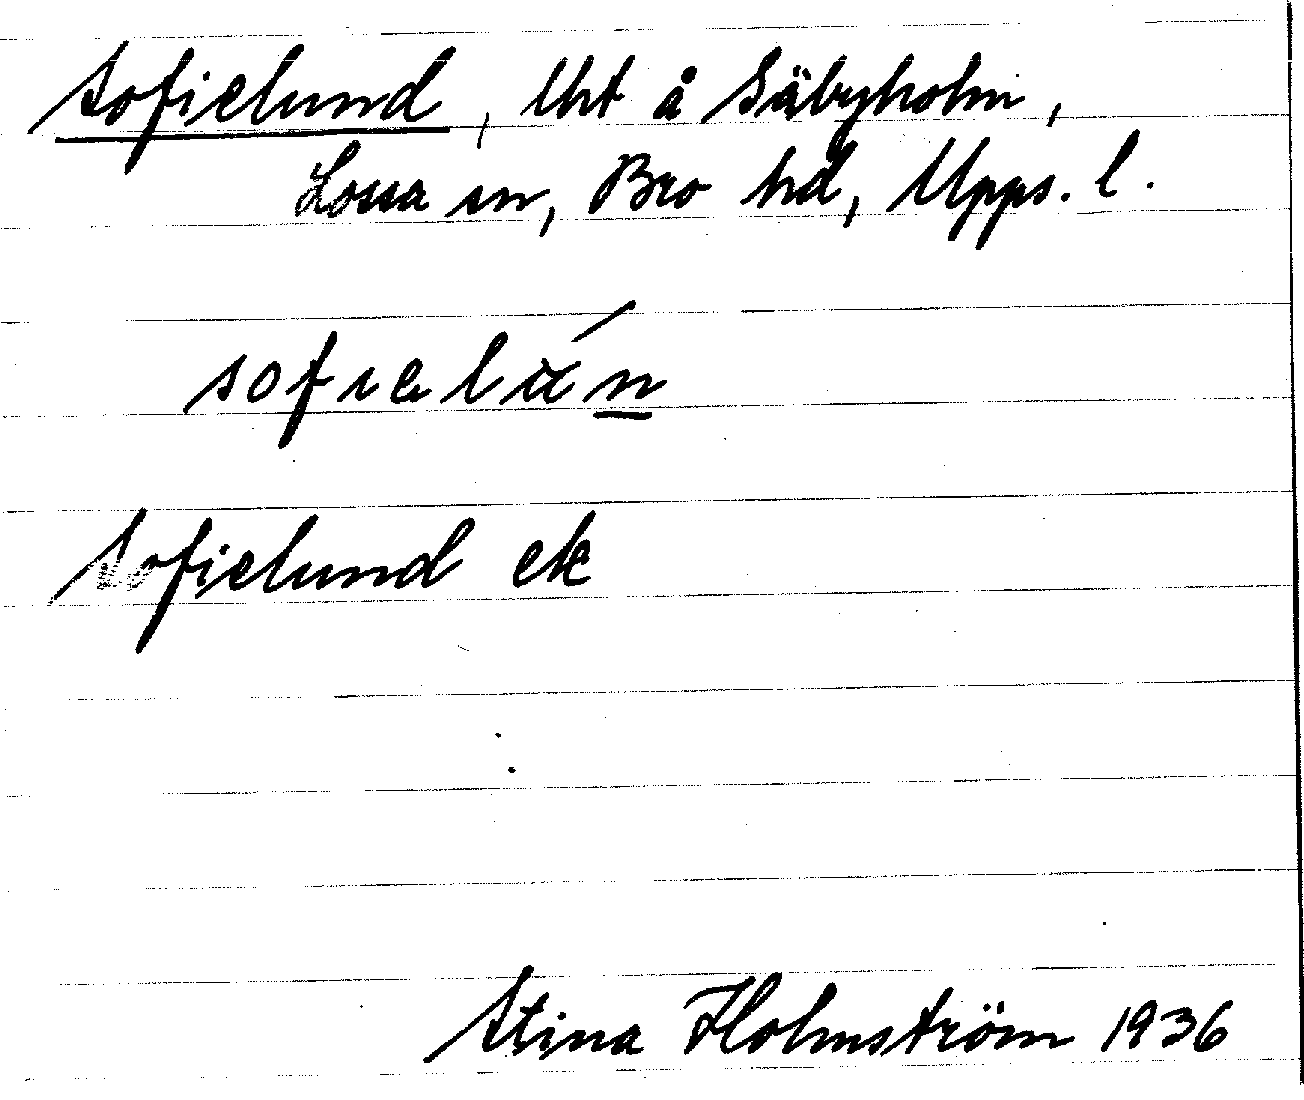 Sofielund, Uht å Säbyholm,
Lossa sn, Bro hd, Upps. l.
Sofielund ek
Stina Holmström 1936